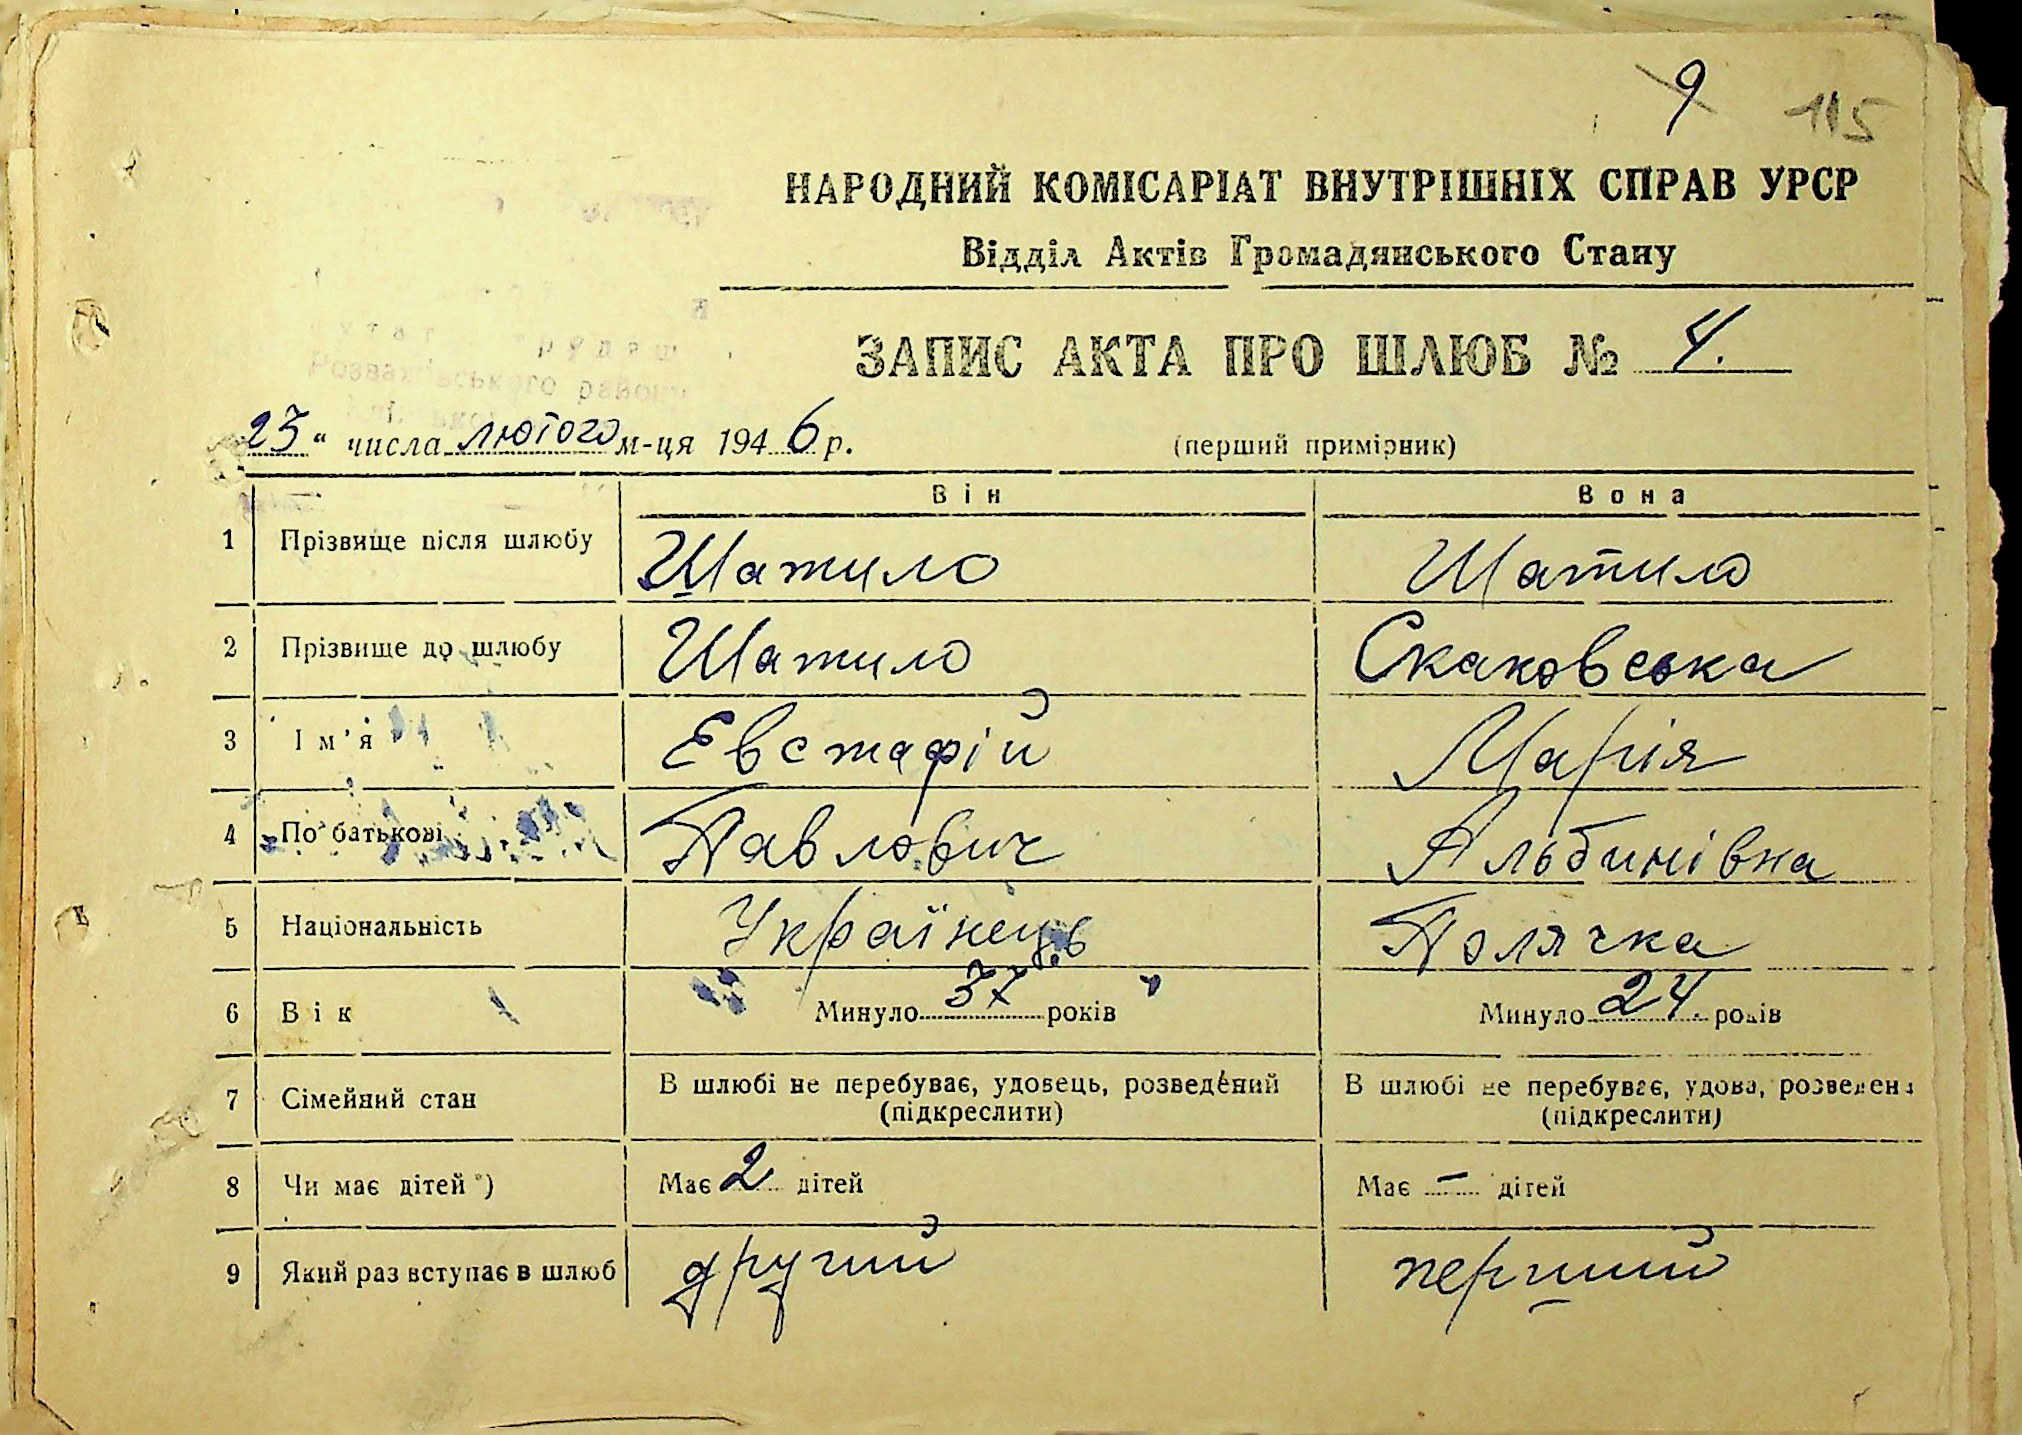 9 115
НАРОДНИЙ КОМІСАРІАТ ВНУТРІШНІХ СПРАВ УРСР
Відділ Актів Громадянського Стану
ЗАПИС АКТА ПРО ШЛЮБ № 4.
Розважівського району
23 " числа лютого м-ця 1946 р. (перший примірник)
Він Вона
1 Прізвище після шлюбу Шатило Шатило
2 Прізвище до шлюбу Шатило Скаковська
3 Ім'я Евстафій Марія
4 По батькові Павлович Альбинівна
5 Національність Українець Полячка
6 Вік Минуло 37 років Минуло 24. років
7 Сімейний стан В шлюбі не перебуває, удовець, розведений В шлюбі не перебуває, удова, розведена
(підкреслити) (підкреслити)
8 Чи має дітей*) Має 2 дітей Має – дітей
9 Який раз вступає в шлюб другий перший